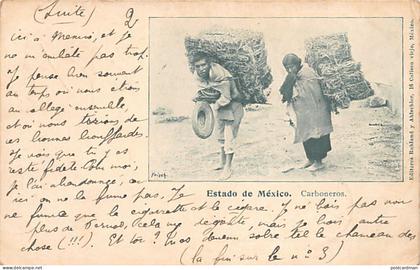 (Suite) 2
ici à Mexico, et je
ne m'embête pas trop.
Je pense bien souvent
au temps où nous étions
au collège ensemble,
et où nous de
ces bonnes bouffardes.
Je vois que tu y as
resté fidèle. Moi,
je l'ai abandonné, car
ici on la fume pas. Je
ne fume que la cigarette et le cigare. Je ne bois pas non
plus de Pernod, cela dégoûte, mais je bois autre
chose (!!!). Et toi ? sur le chameau de
(la fin sur le n° 3)
Estado de México. Carboneros.
Editores Ruhland y Ahlschier, 16 Coliseo viejo, México.
postcardman